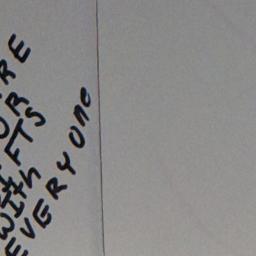 RE
OR
FTS
WITH
EVERYONE